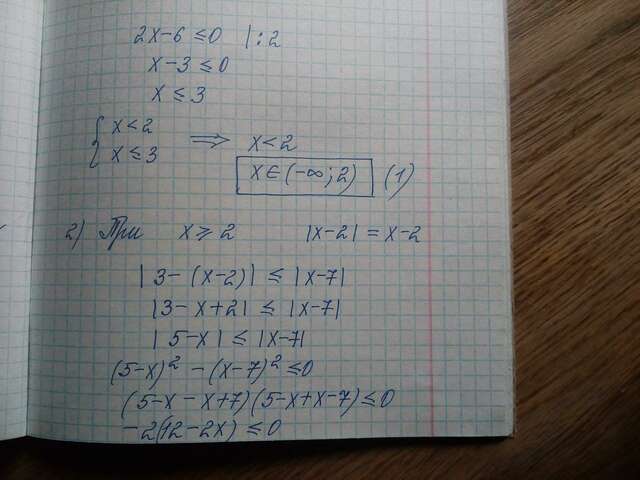 2x-6 ≤ 0 |:2
x-3 ≤ 0
x ≤ 3
{ x<2
x ≤ 3 ⟹ x<2
x∈(-∞;2) (1)
2) При x ≥ 2 |x-2| = x-2
|3-(x-2)| ≤ |x-7|
|3-x+2| ≤ |x-7|
|5-x| ≤ |x-7|
(5-x)² - (x-7)² ≤ 0
(5-x-x+7)(5-x+x-7) ≤ 0
-2(12-2x) ≤ 0